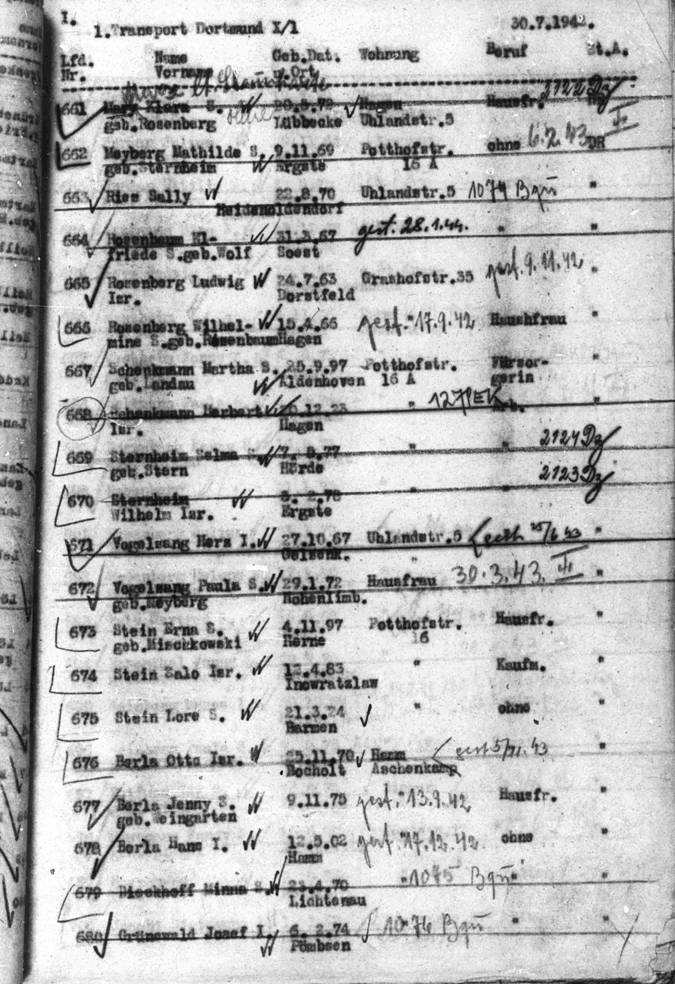 I.
1.Transport Dortmund X/1 30.7.1942.
Lfd. Name Geb.Dat. Wohnung Beruf St.A.
Nr. Vorname u.Ort
661 Klara S. 20.5.72 Hagen Hausfr. 2122 Dz
geb.Rosenberg Lübbecke Uhlandstr.5
662 Meyberg Mathilde S. 9.11.69 Potthofstr. ohne 6.2.43 DR
geb.Sternheim Ergste 16 A
663 Ries Sally 22.8.70 Uhlandstr.5 1074 Bqu "
Heidenoldendorf
664 Rosenbaum El- 31.3.67 gest. 28.1.44. " "
friede S.geb.Wolf Soest
665 Rosenberg Ludwig 24.7.63 Grashofstr.35 gest. 9.11.42 "
Isr. Dorstfeld
666 Rosenberg Wilhel- 15.4.66 gest. " 17.9.42 Hausfrau "
mine S.geb.Rosenbaum Hagen
667 Schenkmann Martha S. 25.9.97 Potthofstr. Fürsor- "
geb.Landau Aldenhoven 16 A gerin
668 Schenkmann Herbert .12.23 " 127 PEK Arb. "
Isr. Hagen
669 Sternheim Selma S. .77 " " 2124 Dz
geb.Stern Hörde
670 Sternheim " " 2123 Dz
Wilhelm Isr. Ergste
671 Vogelsang Herz I. 27.10.67 Uhlandstr.5 gest. 25/6 43 "
Gelsenk.
672 Vogelsang Paula S. 29.1.72 Hausfrau 30.3.43. "
geb.Meyberg Hohenlimb.
673 Stein Erna S. 4.11.97 Potthofstr. Hausfr. "
geb.Mischkowski Herne 16
674 Stein Salo Isr. .4.83 " Kaufm. "
Inowratzlaw
675 Stein Lore S. 21.3.24 ohne "
Barmen
676 Berla Otto Isr. 25.11.70 Hamm gest 5/11.43 "
Bocholt Aschenkamp
677 Berla Jenny S. 9.11.75 gest. " 13.9.42 Hausfr. "
geb.Weingarten
678 Berla Hans I. 12.5.02 gest. " 17.12.42 ohne "
Hamm
679 Dieckhoff Minna S. 23.4.70 " 1075 Bqu " "
Lichtenau
680 Grünewald Josef I. 6. 2.74 1076 Bqu "
Pömbsen